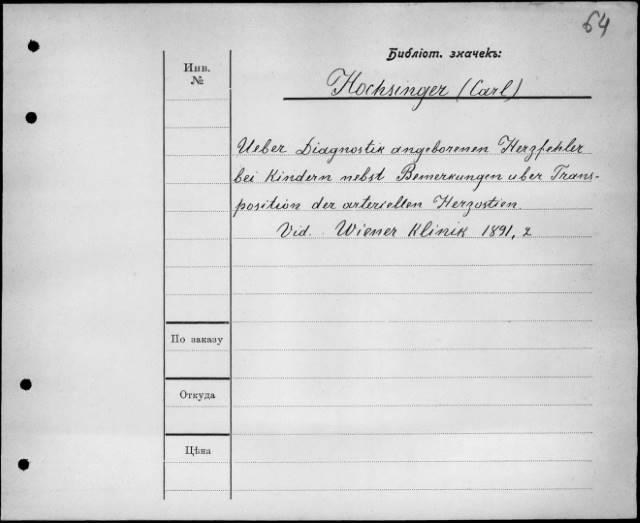 64
Библіот. значекъ:
Инв.
№
Hochsinger (Carl)
Ueber Diagnostik angeborenen Herzfehler
bei Kindern nebst Bemerkungen uber Trans-
position der arteriellen Herzostien.
Vid. Wiener Klinik 1891, 2
По заказу
Откуда
Цѣна